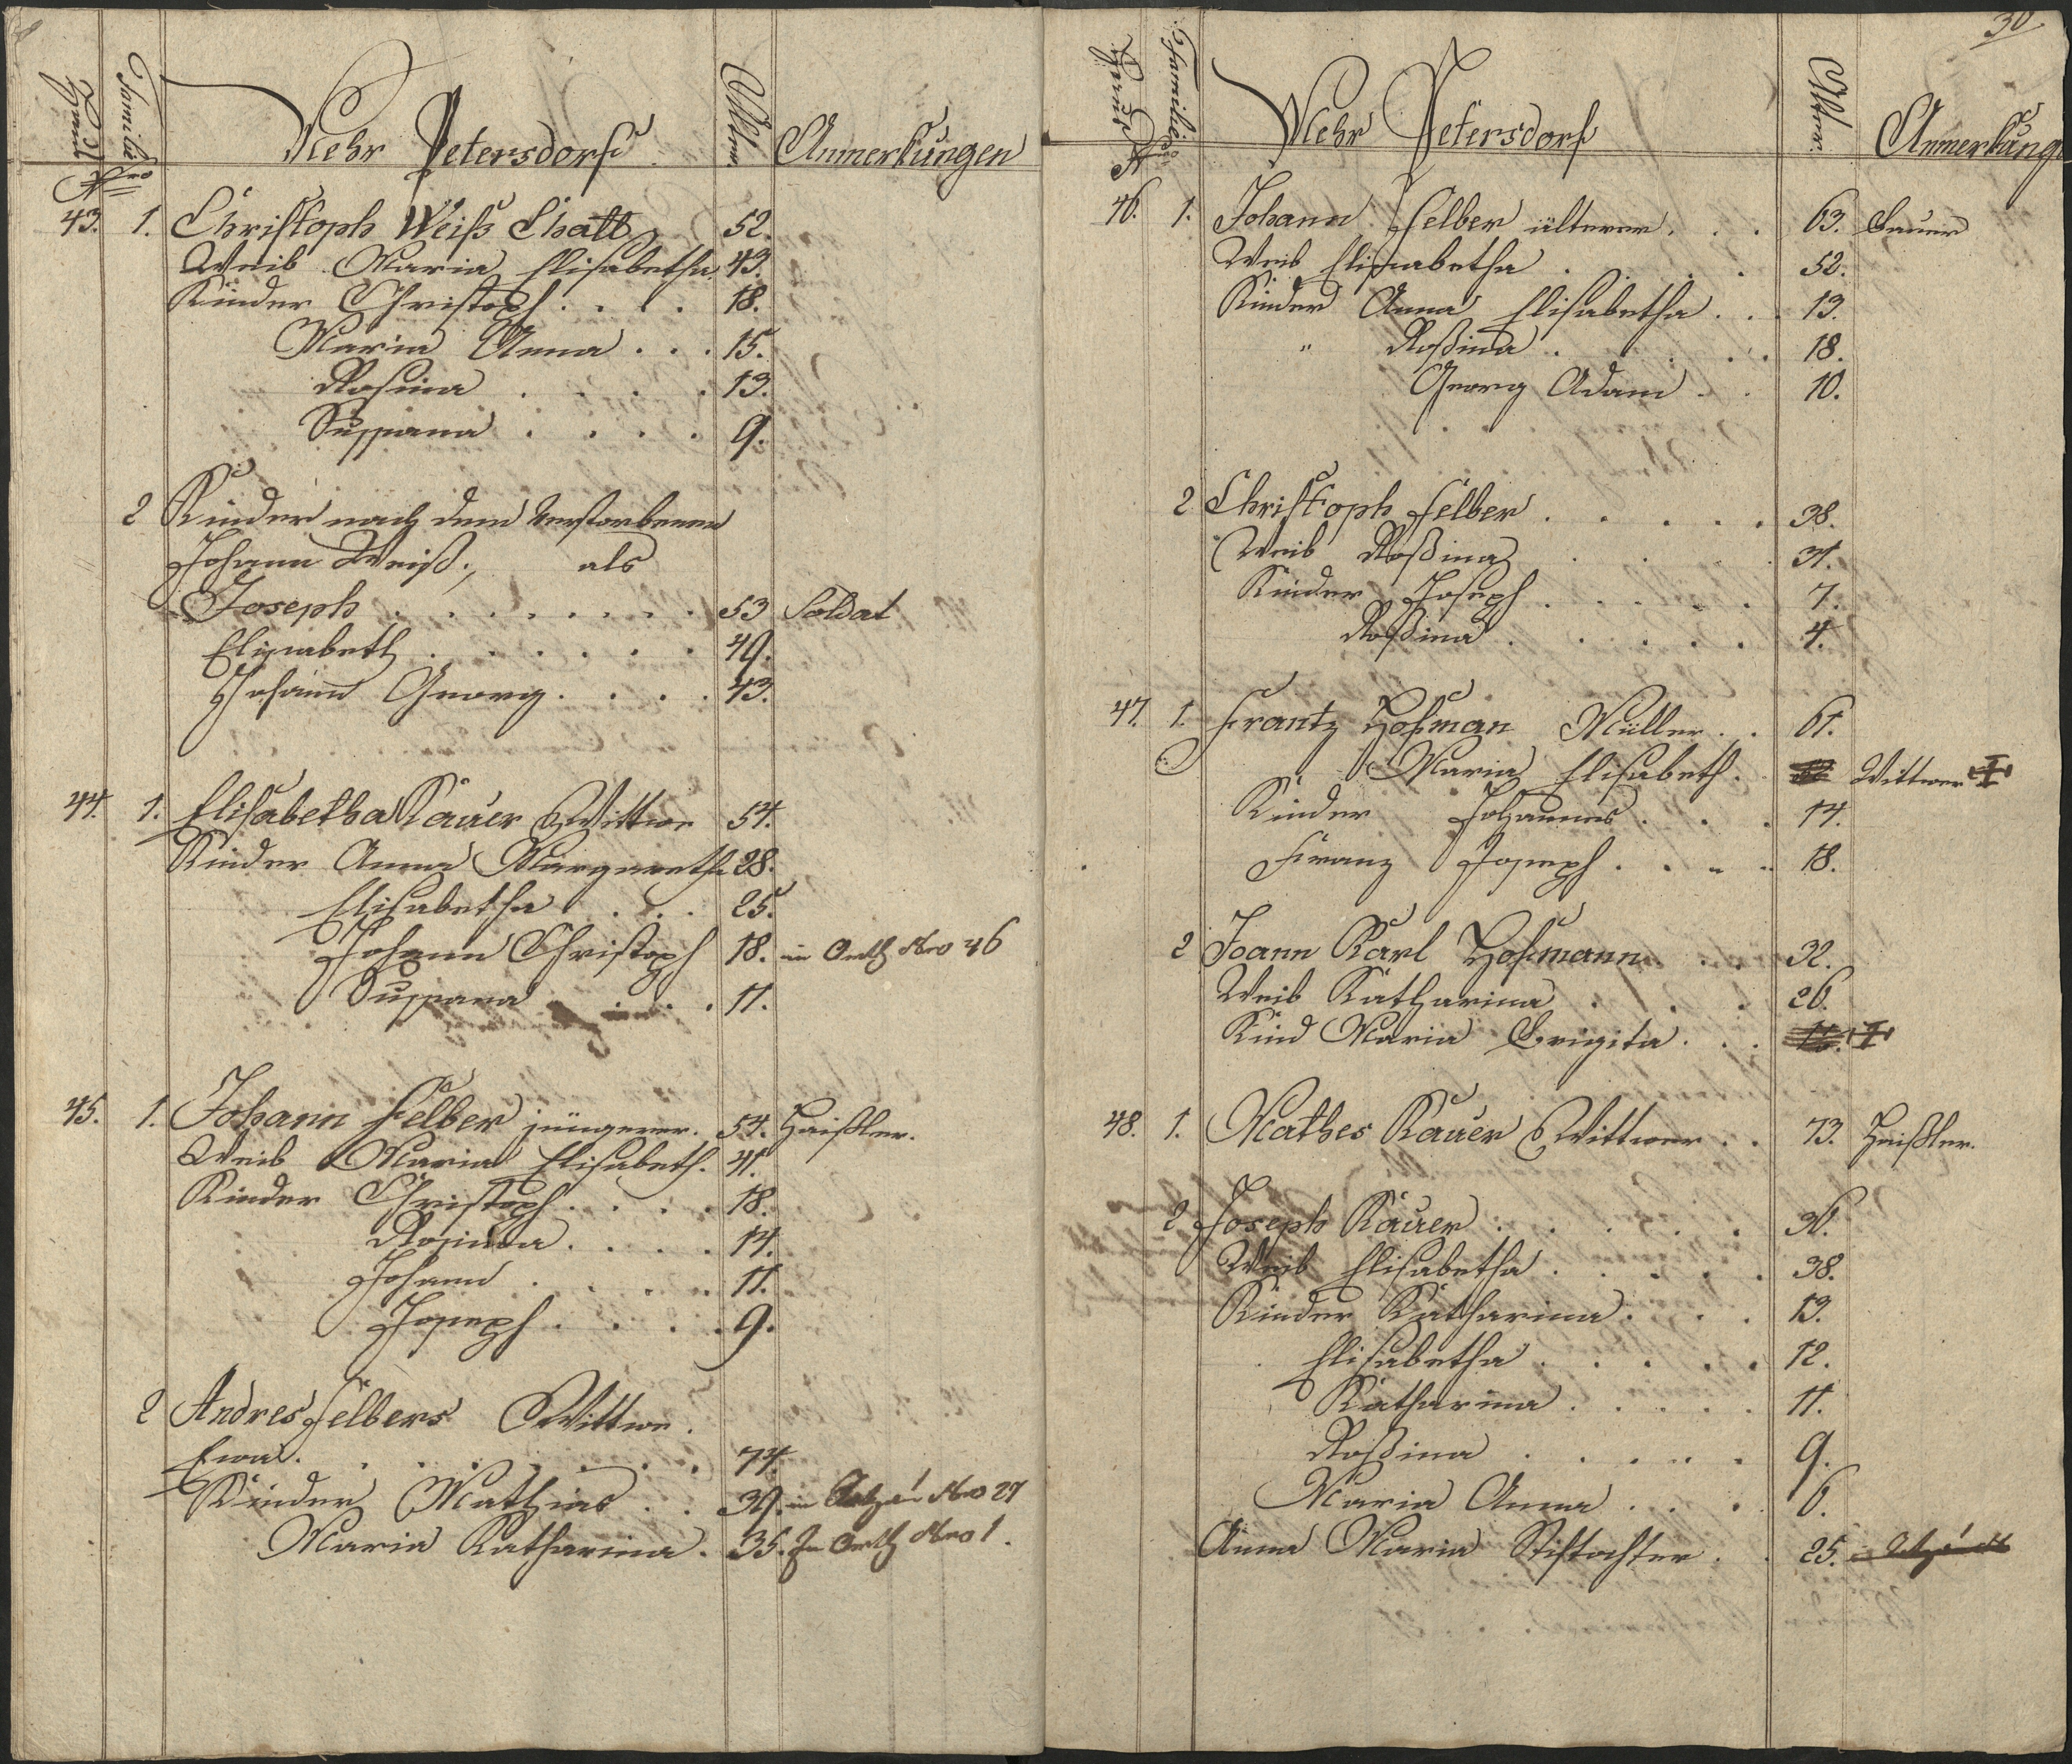 Hauß Nro Familie Nro Mehr Petersdorf Alter Anmerkungen
43. 1. Christoph Weiß Chatt 52.
Weib Maria Elisabetha 43.
Kinder Christoph . . . . 18.
Maria Anna . . . 15.
Rosina . . . . 13.
Sussana . . . . 9.
2 Kinder nach dem Verstorbenen
Johann Weiß., als
Joseph . . . . . . . 53 Soldat
Elisabeth . . . . . . 49.
Johann Georg . . . . 43.
44. 1. Elisabetha Kauer Wittwe 54.
Kinder Anna Margaretha 28.
Elisabetha . . . . 25.
Johann Christoph 18. in Nro 46
Sussana . . . . 11.
45. 1. Johann Felber jüngerer. 54. Haißler.
Weib Maria Elisabeth. 41.
Kinder Christoph . . . . 18.
Rosina . . . . 14.
Johann . . . . . 11.
Joseph . . . . . 9.
2 Andres Felbers Wittwe .
Ewa . . . . . . . . 74.
Kinder Mathias . . 39. in Nro 27
Maria Katharina . 35. In Nro 1.
30
Hauß Nro Familie Nro Mehr Petersdorf Alter Anmerkunge
46. 1. Johann Felber älterer . . . 63. Bauer
Weib Elisabetha . . . . 52.
Kinder Anna Elisabetha . . . 13.
" Roßina . . . . . . 18.
Georg Adam . . 10.
2 Christoph Felber . . . . . . 38.
Weib Roßina . . . . 31.
Kinder Joseph . . . . . . 7.
Roßina . . . . . . 4.
47. 1. Frantz Hofman Müller . . 61.
Maria Elisabeth . Wittwer
Kinder Johannes . . . 14.
Franz Joseph . . . . 18.
2 Joann Karl Hofmann . . . 32.
Weib Katharina . . . . 26.
Kind Maria Brigita . . .
48. 1. Mathes Kauer Wittwer . . 73. Heißler.
2 Joseph Kauer . . . . . 36.
Weib Elisabetha . . . . . 38.
Kinder Katharina . . . . 13.
Elisabetha . . . . . 12.
Katharina . . . . . 11.
Roßina . . . . . 9.
Maria Anna . . . . 6.
Anna Maria Stiftochter . . 25.